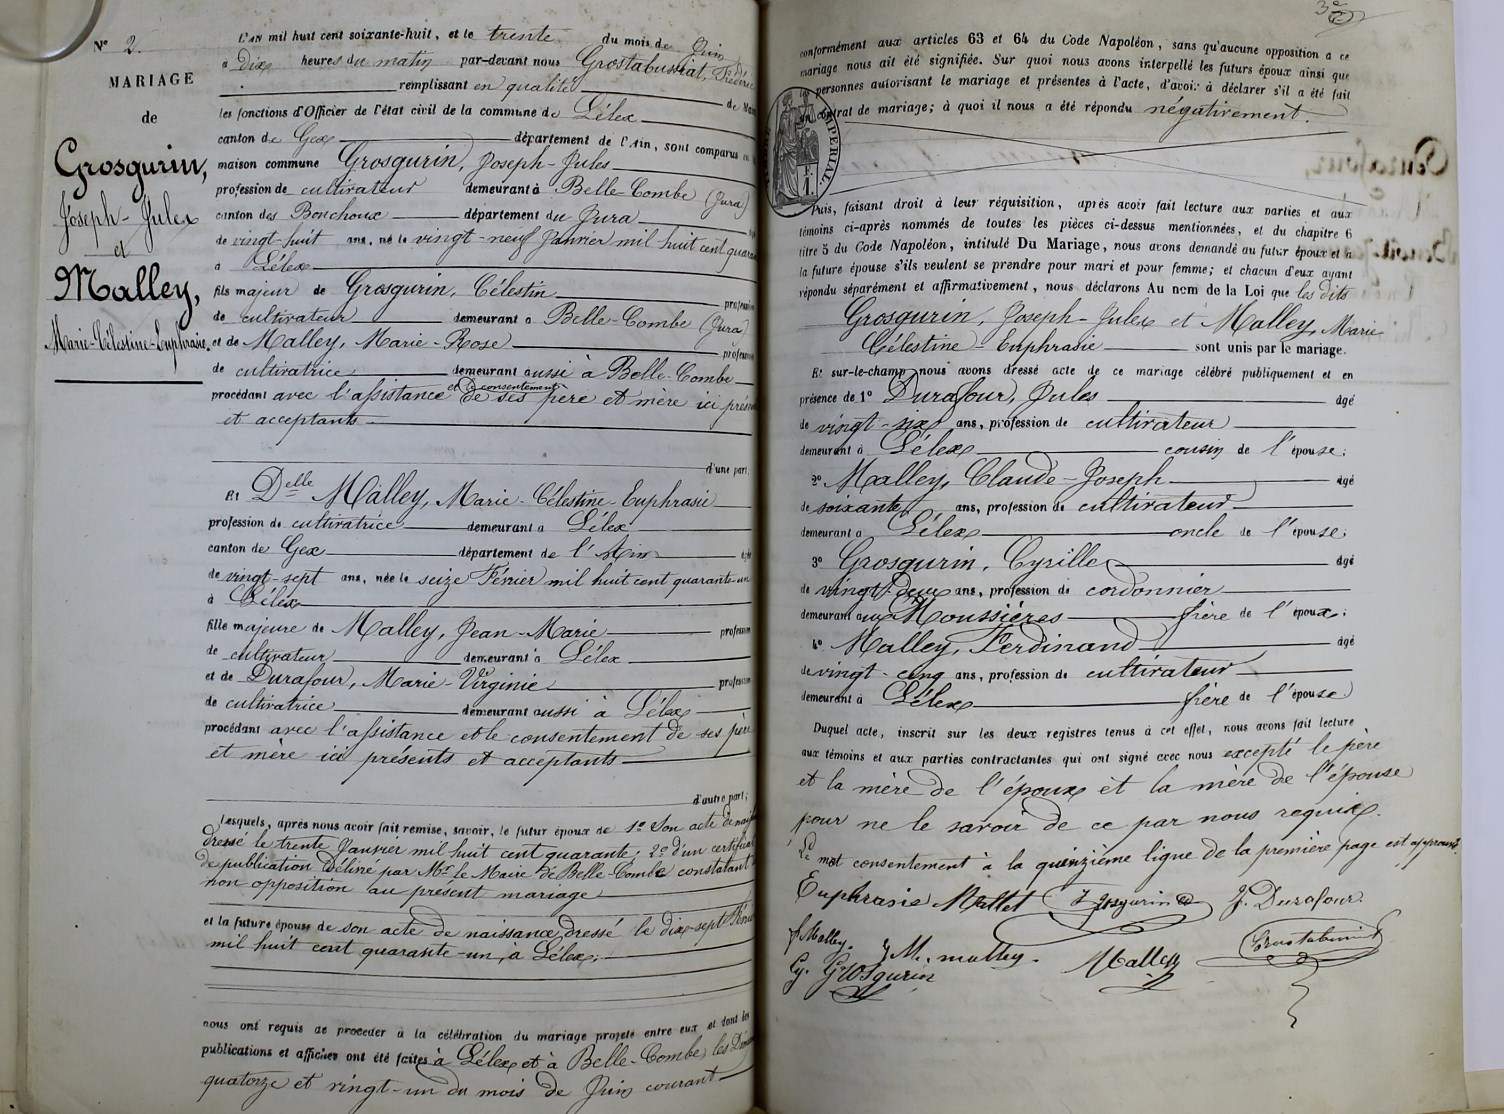 Nº 2.
MARIAGE
de
Grosgurin,
Joseph-Jules
et
Malley,
Marie-Célestine-Euphrasie.
L'AN mil huit cent soixante-huit, et le trente du mois de Juin
à dix heures du matin par-devant nous Grostabussiat, Frédéric
remplissant en qualité de Maire
les fonctions d'Officier de l'état civil de la commune de Lélex
canton de Gex département de l'Ain, sont comparus en
maison commune Grosgurin, Joseph-Jules
profession de cultivateur demeurant à Belle-Combe (Jura)
canton des Bouchoux département du Jura
de vingt-huit ans, né le vingt-neuf Janvier mil huit cent quarante
à Lélex
fils majeur de Grosgurin, Célestin profession
de cultivateur demeurant à Belle-Combe (Jura)
et de Malley, Marie-Rose profession
de cultivatrice demeurant aussi à Belle-Combe
procédant avec l'assistance et le consentement de ses père et mère ici présents
et acceptants
d'une part,
Et Delle Malley, Marie-Célestine-Euphrasie
profession de cultivatrice demeurant à Lélex
canton de Gex département de l'Ain âgée
de vingt-sept ans, née le seize Février mil huit cent quarante-un
à Lélex
fille majeure de Malley, Jean-Marie profession
de cultivateur demeurant à Lélex
et de Durafour, Marie-Virginie profession
de cultivatrice demeurant aussi à Lélex
procédant avec l'assistance et le consentement de ses père
et mère ici présents et acceptants
d'autre part;
Lesquels, après nous avoir fait remise, savoir, le futur époux de 1º Son acte de naissance
dressé le trente Janvier mil huit cent quarante; 2º d'un certificat
de publication délivré par Mr le Maire de Belle-Combe constatant
non opposition au présent mariage
et la future épouse de son acte de naissance dressé le dix-sept Février
mil huit cent quarante-un, à Lélex;
nous ont requis de procéder à la célébration du mariage projeté entre eux et dont les
publications et affiches ont été faites à Lélex et à Belle-Combe, les Dimanches
quatorze et vingt-un du mois de Juin courant
conformément aux articles 63 et 64 du Code Napoléon, sans qu'aucune opposition à ce
mariage nous ait été signifiée. Sur quoi nous avons interpellé les futurs époux ainsi que
personnes autorisant le mariage et présentes à l'acte, d'avoir à déclarer s'il a été fait
un contrat de mariage; à quoi il nous a été répondu négativement.
IMPERIAL.
Puis, faisant droit à leur réquisition, après avoir fait lecture aux parties et aux
témoins ci-après nommés de toutes les pièces ci-dessus mentionnées, et du chapitre 6
titre 5 du Code Napoléon, intitulé Du Mariage, nous avons demandé au futur époux et à
la future épouse s'ils veulent se prendre pour mari et pour femme; et chacun d'eux ayant
répondu séparément et affirmativement, nous déclarons Au nom de la Loi que les dits
Grosgurin, Joseph-Jules et Malley, Marie
Célestine-Euphrasie sont unis par le mariage.
Et sur-le-champ nous avons dressé acte de ce mariage célébré publiquement et en
présence de 1º Durafour, Jules âgé
de vingt-six ans, profession de cultivateur
demeurant à Lélex cousin de l'épouse;
2º Malley, Claude-Joseph âgé
de soixante ans, profession de cultivateur
demeurant à Lélex oncle de l'épouse;
3º Grosgurin, Cyrille âgé
de vingt-deux ans, profession de cordonnier
demeurant aux Moussières frère de l'époux;
4º Malley, Ferdinand âgé
de vingt-cinq ans, profession de cultivateur
demeurant à Lélex frère de l'épouse
Duquel acte, inscrit sur les deux registres tenus à cet effet, nous avons fait lecture
aux témoins et aux parties contractantes qui ont signé avec nous excepté le père
et la mère de l'époux et la mère de l'épouse
pour ne le savoir de ce par nous requis.
Le mot consentement à la quinzième ligne de la première page est approuvé.
Euphrasie Mallet J Grosgurin J. Durafour
f Malley. J M. malley. Malley Grostabussiat
Cy. Grosgurin